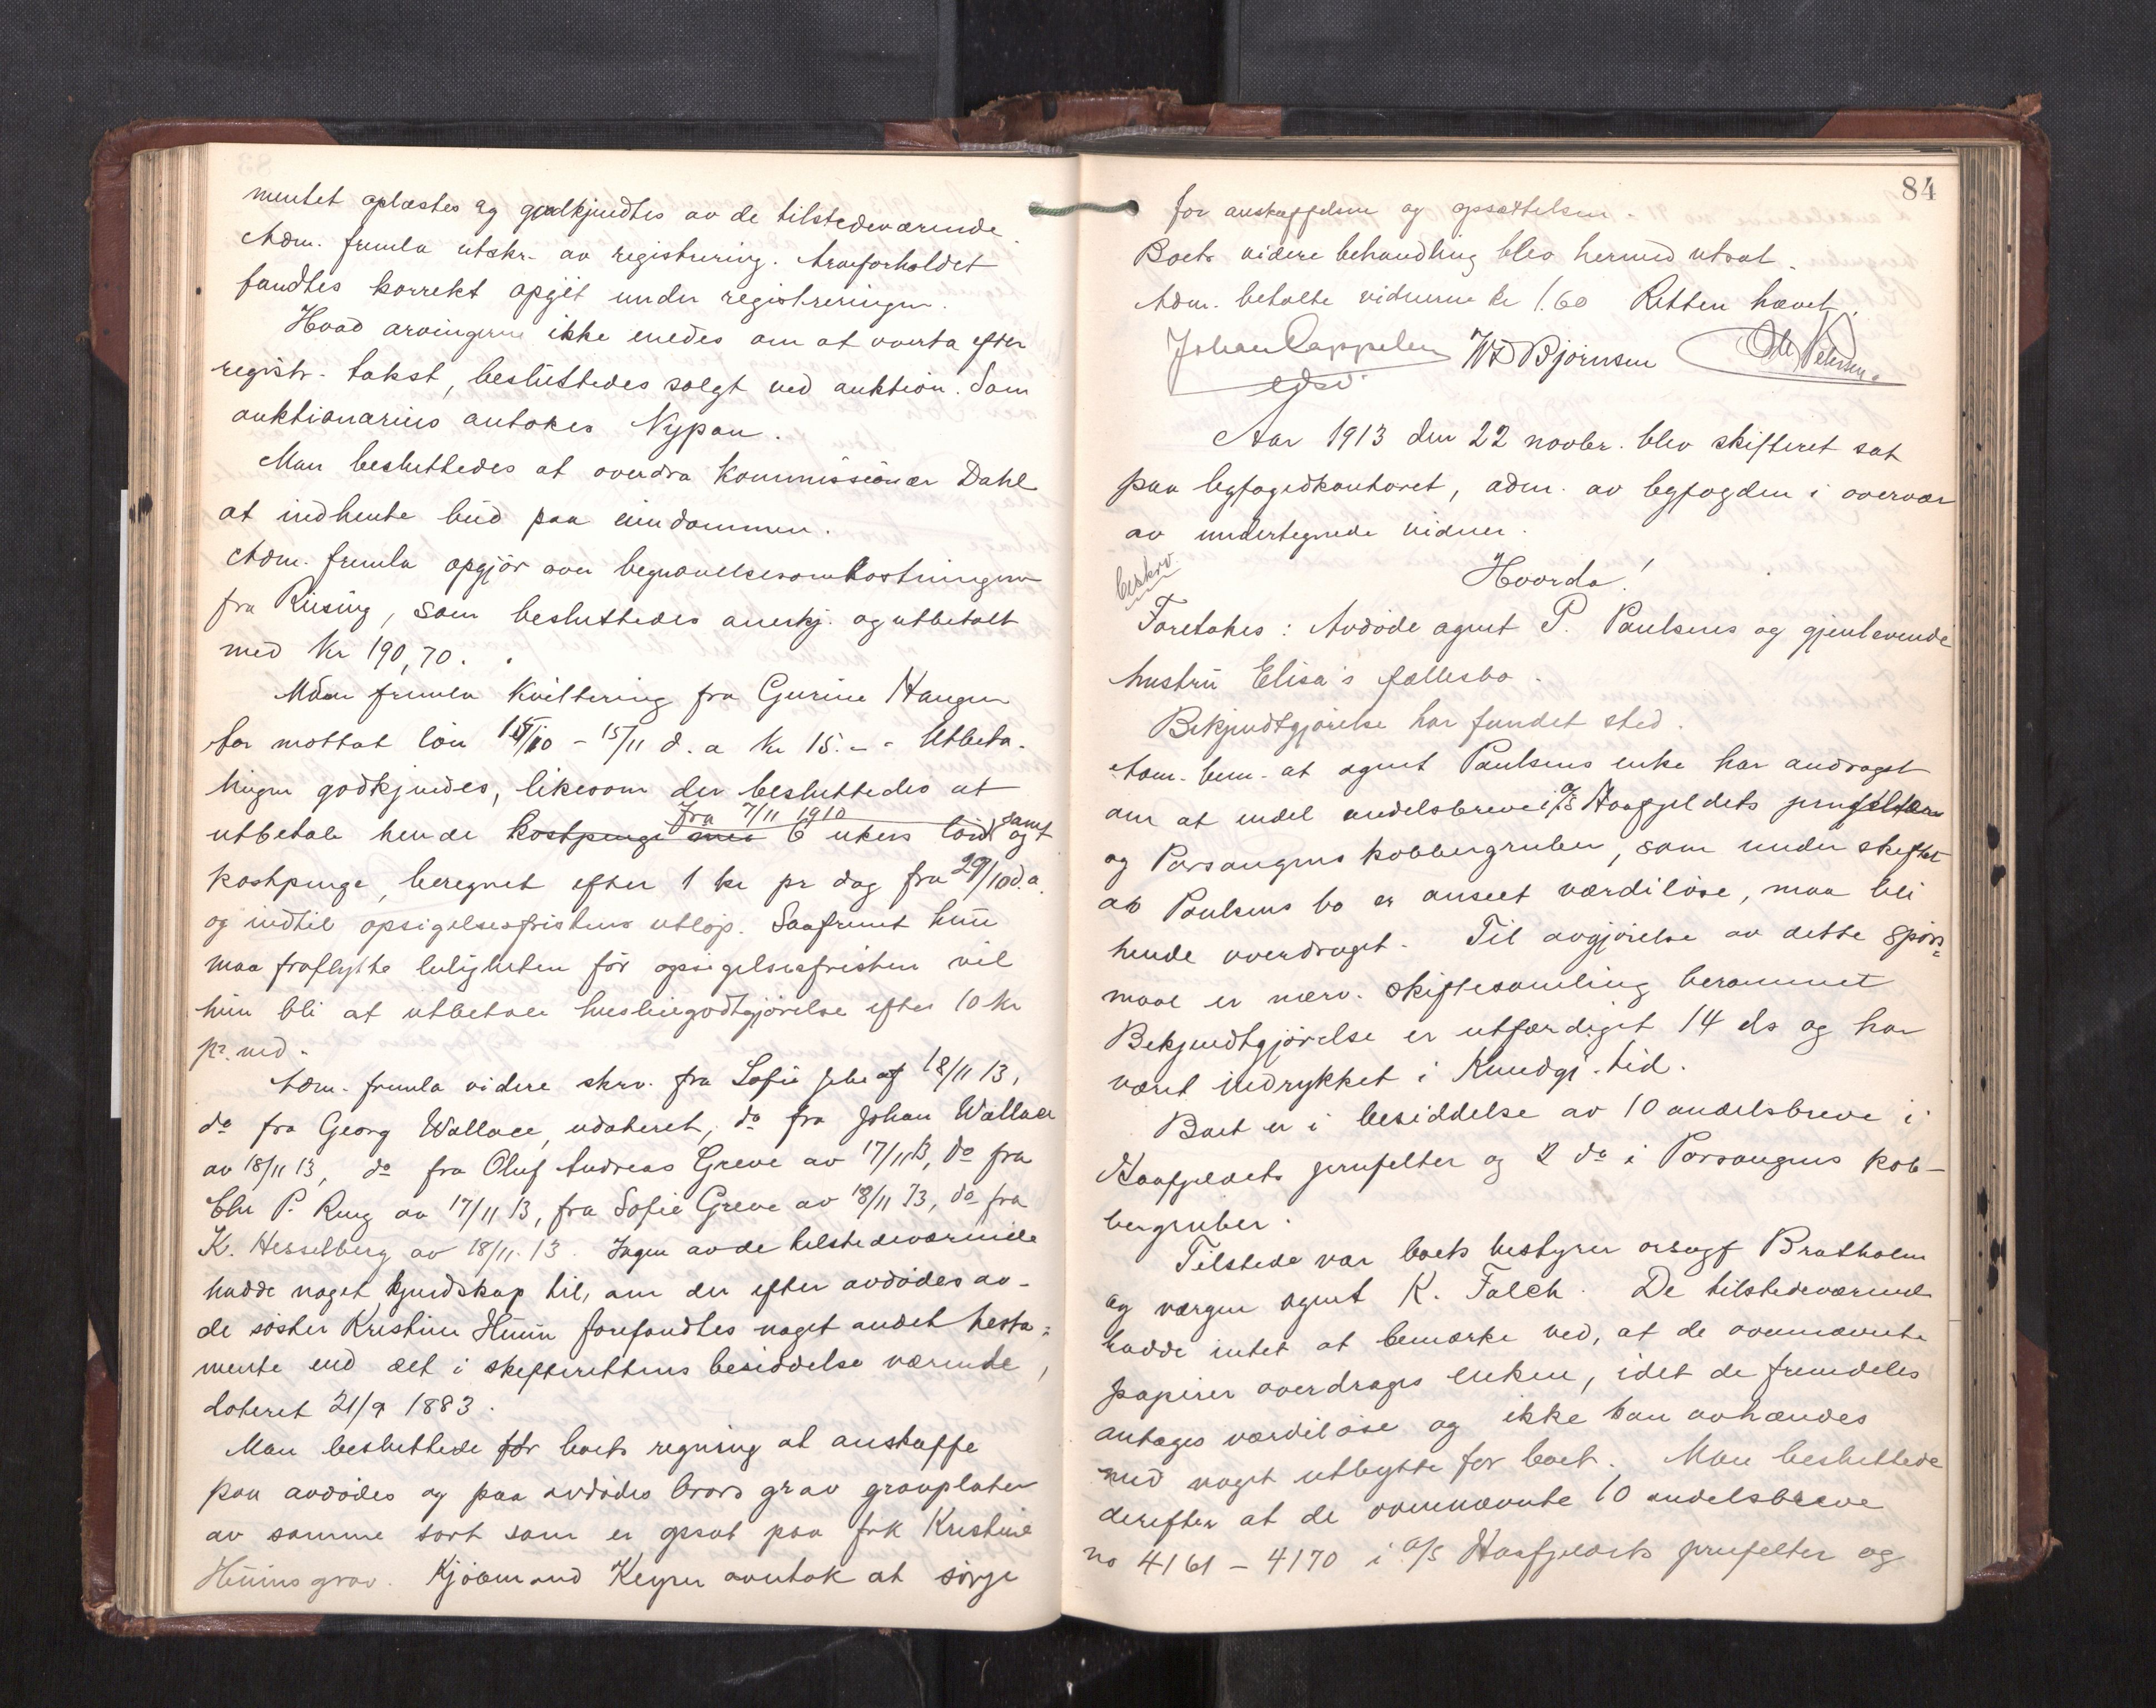 mentet oplæstes og godkjendtes av de tilstedeværende.
Adm. fremla utskr. av registrering. Arveforholdet
fandtes korrekt opgit under registreringen.
Hvad arvingerne ikke enedes om at overta efter
registr. takst, besluttedes solgt ved auktion. Som
auktionarius antokes Nypan.
Man besluttedes at overdra kommissionær Dahl
at indhente bud paa eiendommen.
Adm. fremla opgjör over begravelsesomkostningerne
fra Riising, som besluttedes anerkj. og utbetalt
med Kr 190,70.
Man fremla kvittering fra Gurine Haugen
for mottat lön 15/10 - 15/11 d. a Kr 15.-- Utbeta-
lingen godkjendes, likesom der besluttedes at
fra 7/11 1910
utbetale hende kostpenge 6 ukers lön samt
kostpenge, beregnet efter 1 kr pr dag fra 29/10 d.a.
og indtil opsigelsesfristens utlöp. Saafremt hun
maa fraflytte leiligheten för opsigelsesfristen vil
hun bli at utbetale husleiegodtgjörelse efter 10 kr
pr. md.
Adm. fremla videre skr. fra Sofie 18/11 13,
do fra Georg Wallace, udateret, do fra Johan Wallace
av 18/11 13, do fra Oluf Andreas Greve av 17/11 13, do fra
Chr P. Ring av 17/11 13, fra Sofie Greve av 18/11 13, do fra
K. Hesselberg av 18/11. 13. Ingen av de tilstedeværende
hadde noget kjendskap til, om der efter avdödes av-
de söster Kristine Huun forefandtes noget andet testa=
mente end det i skifterettens besiddelse værende,
dateret 21/9 1883.
Man besluttede for boets regning at anskaffe
paa avdödes og paa avdödes brors grav gravplater
av samme sort som er opsat paa frk Kristine
Huuns grav. Kjöbmand Keyser overtok at sörge
84
for anskaffelsen og opsættelsen.
Boets videre behandling blev hermed utsat.
Adm. betalte vidnerne kr 1.60 Retten hævet.
Johan Cappelen W Bjørnsen Ole Petersen
Aar 1913 den 22 novbr. blev skifteret sat
paa byfogedkontoret, adm. av byfogden i overvær
av undertegnede vidner.
beskrv
Hvorda!
Foretokes: Avdöde agent P. Paulsens og gjenlevende
hustru Elisa's fællesbo.
Bekjendtgjörelse har fundet sted.
Adm. bem. at agent Paulsens enke har andraget
om at endel andelsbreve i A/S Haafjeldets jernfelter
og Porsangens kobbergruber, som under skiftet
av Paulsens bo er anseet værdilöse, maa bli
hende overdraget. Til avgjörelse av dette spörs=
maal er nærv. skiftesamling berammet
Bekjendtgjörelse er utfærdiget 14 ds og har
været indrykket i Kundgj. tid.
Boet er i besiddelse av 10 andelsbreve i
Haafjeldets jernfelter og 2 do i Porsangens kob-
bergruber.
Tilstede var boets bestyrer orsagf Bratholm
og vergen agent K. Falch. De tilstedeværende
hadde intet at bemærke ved, at de ovennævnte
papirer overdrages enken, idet de fremdeles
antages værdilöse og ikke kan avhændes
med noget utbytte for boet. Man besluttede
derefter at de ovennævnte 10 andelsbreve
no 4161 - 4170 i A/S Haafjeldets jernfelter og